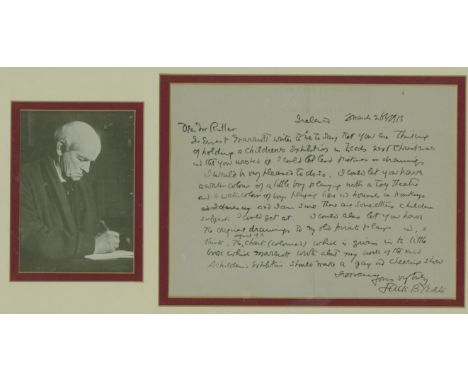 Ireland March 26th 1913
Dear Mr Rutter
Mr Ernest Marriott writes to me to say that you are thinking
of holding a children's Exhibition in Leeds next Christmas
and that you wished if I could lend pictures or drawings
I would be very pleased to do so. I could let you have
a water colour of a little boy playing with a Toy Theatre
and a water colour of boys playing
and I am sure there are some other children
subjects I could get at. I could also let you have
the original drawings to my old pirate plays
The chart (coloured) which is given in the little
book which Marriott wrote about my work of this kind
A children's Exhibition should make a gay and cheering show
Yours very truly
Jack B Yeats